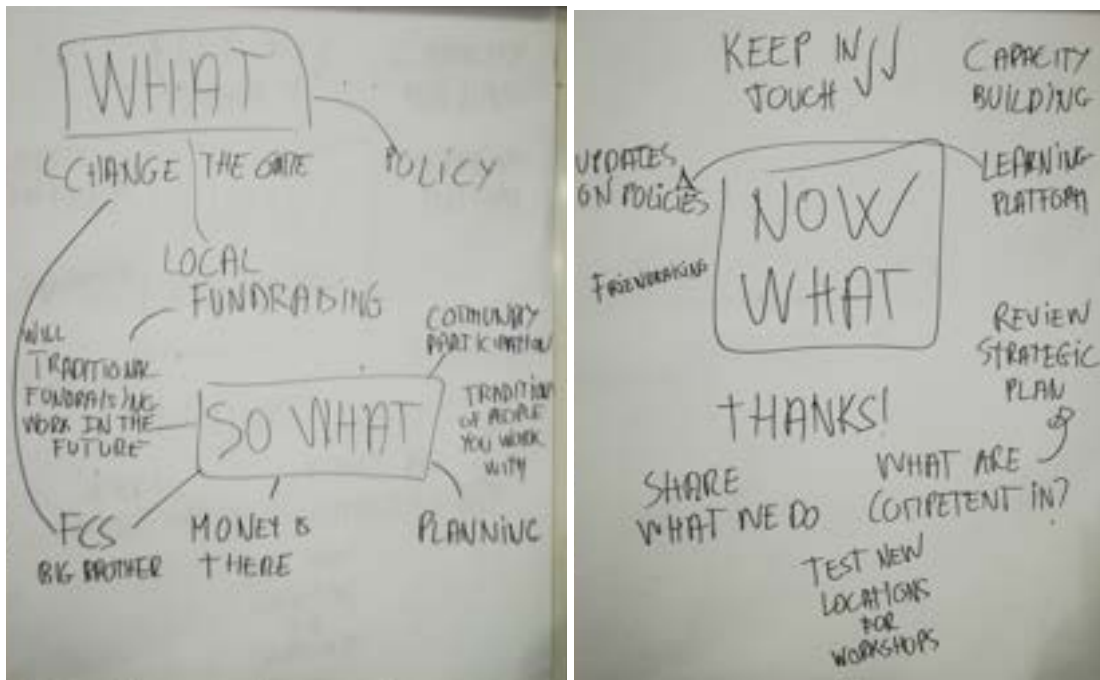 WHAT
CHANGE THE GAME
POLICY
LOCAL
FUNDRAISING
WILL
TRADITIONAL
FUNDRAISING
WORK IN THE
FUTURE
COMMUNITY
PARTICIPATION
SO WHAT
TRADITION
OF PEOPLE
YOU WORK
WITH
FCS
BIG BROTHER
MONEY IS
THERE
PLANNING
KEEP IN
TOUCH
CAPACITY
BUILDING
UPDATES
ON POLICIES
LEARNING
PLATFORM
NOW
WHAT
FRIENDRAISING
REVIEW
STRATEGIC
PLAN
THANKS!
SHARE
WHAT WE DO
WHAT ARE
COMPETENT IN?
TEST NEW
LOCATIONS
FOR
WORKSHOPS